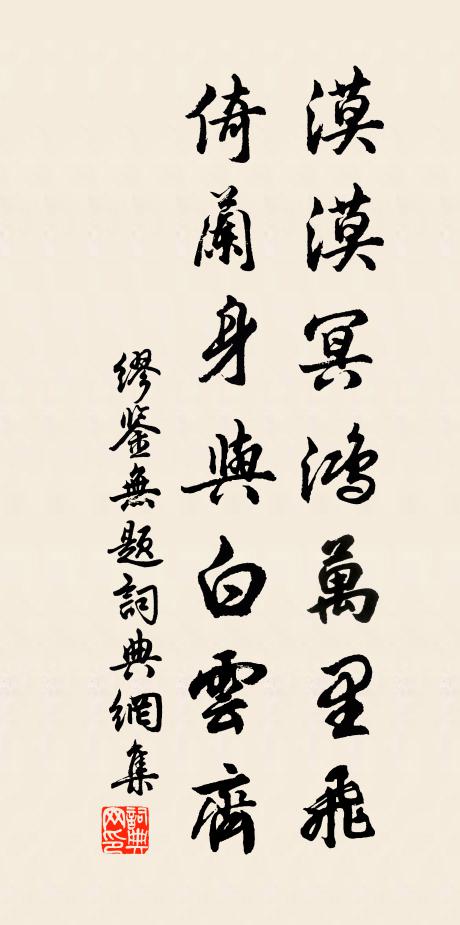 漠漠冥鴻萬里飛
倚蘭身與白雲齊
繆鑒無題詞典網集
詞典网印